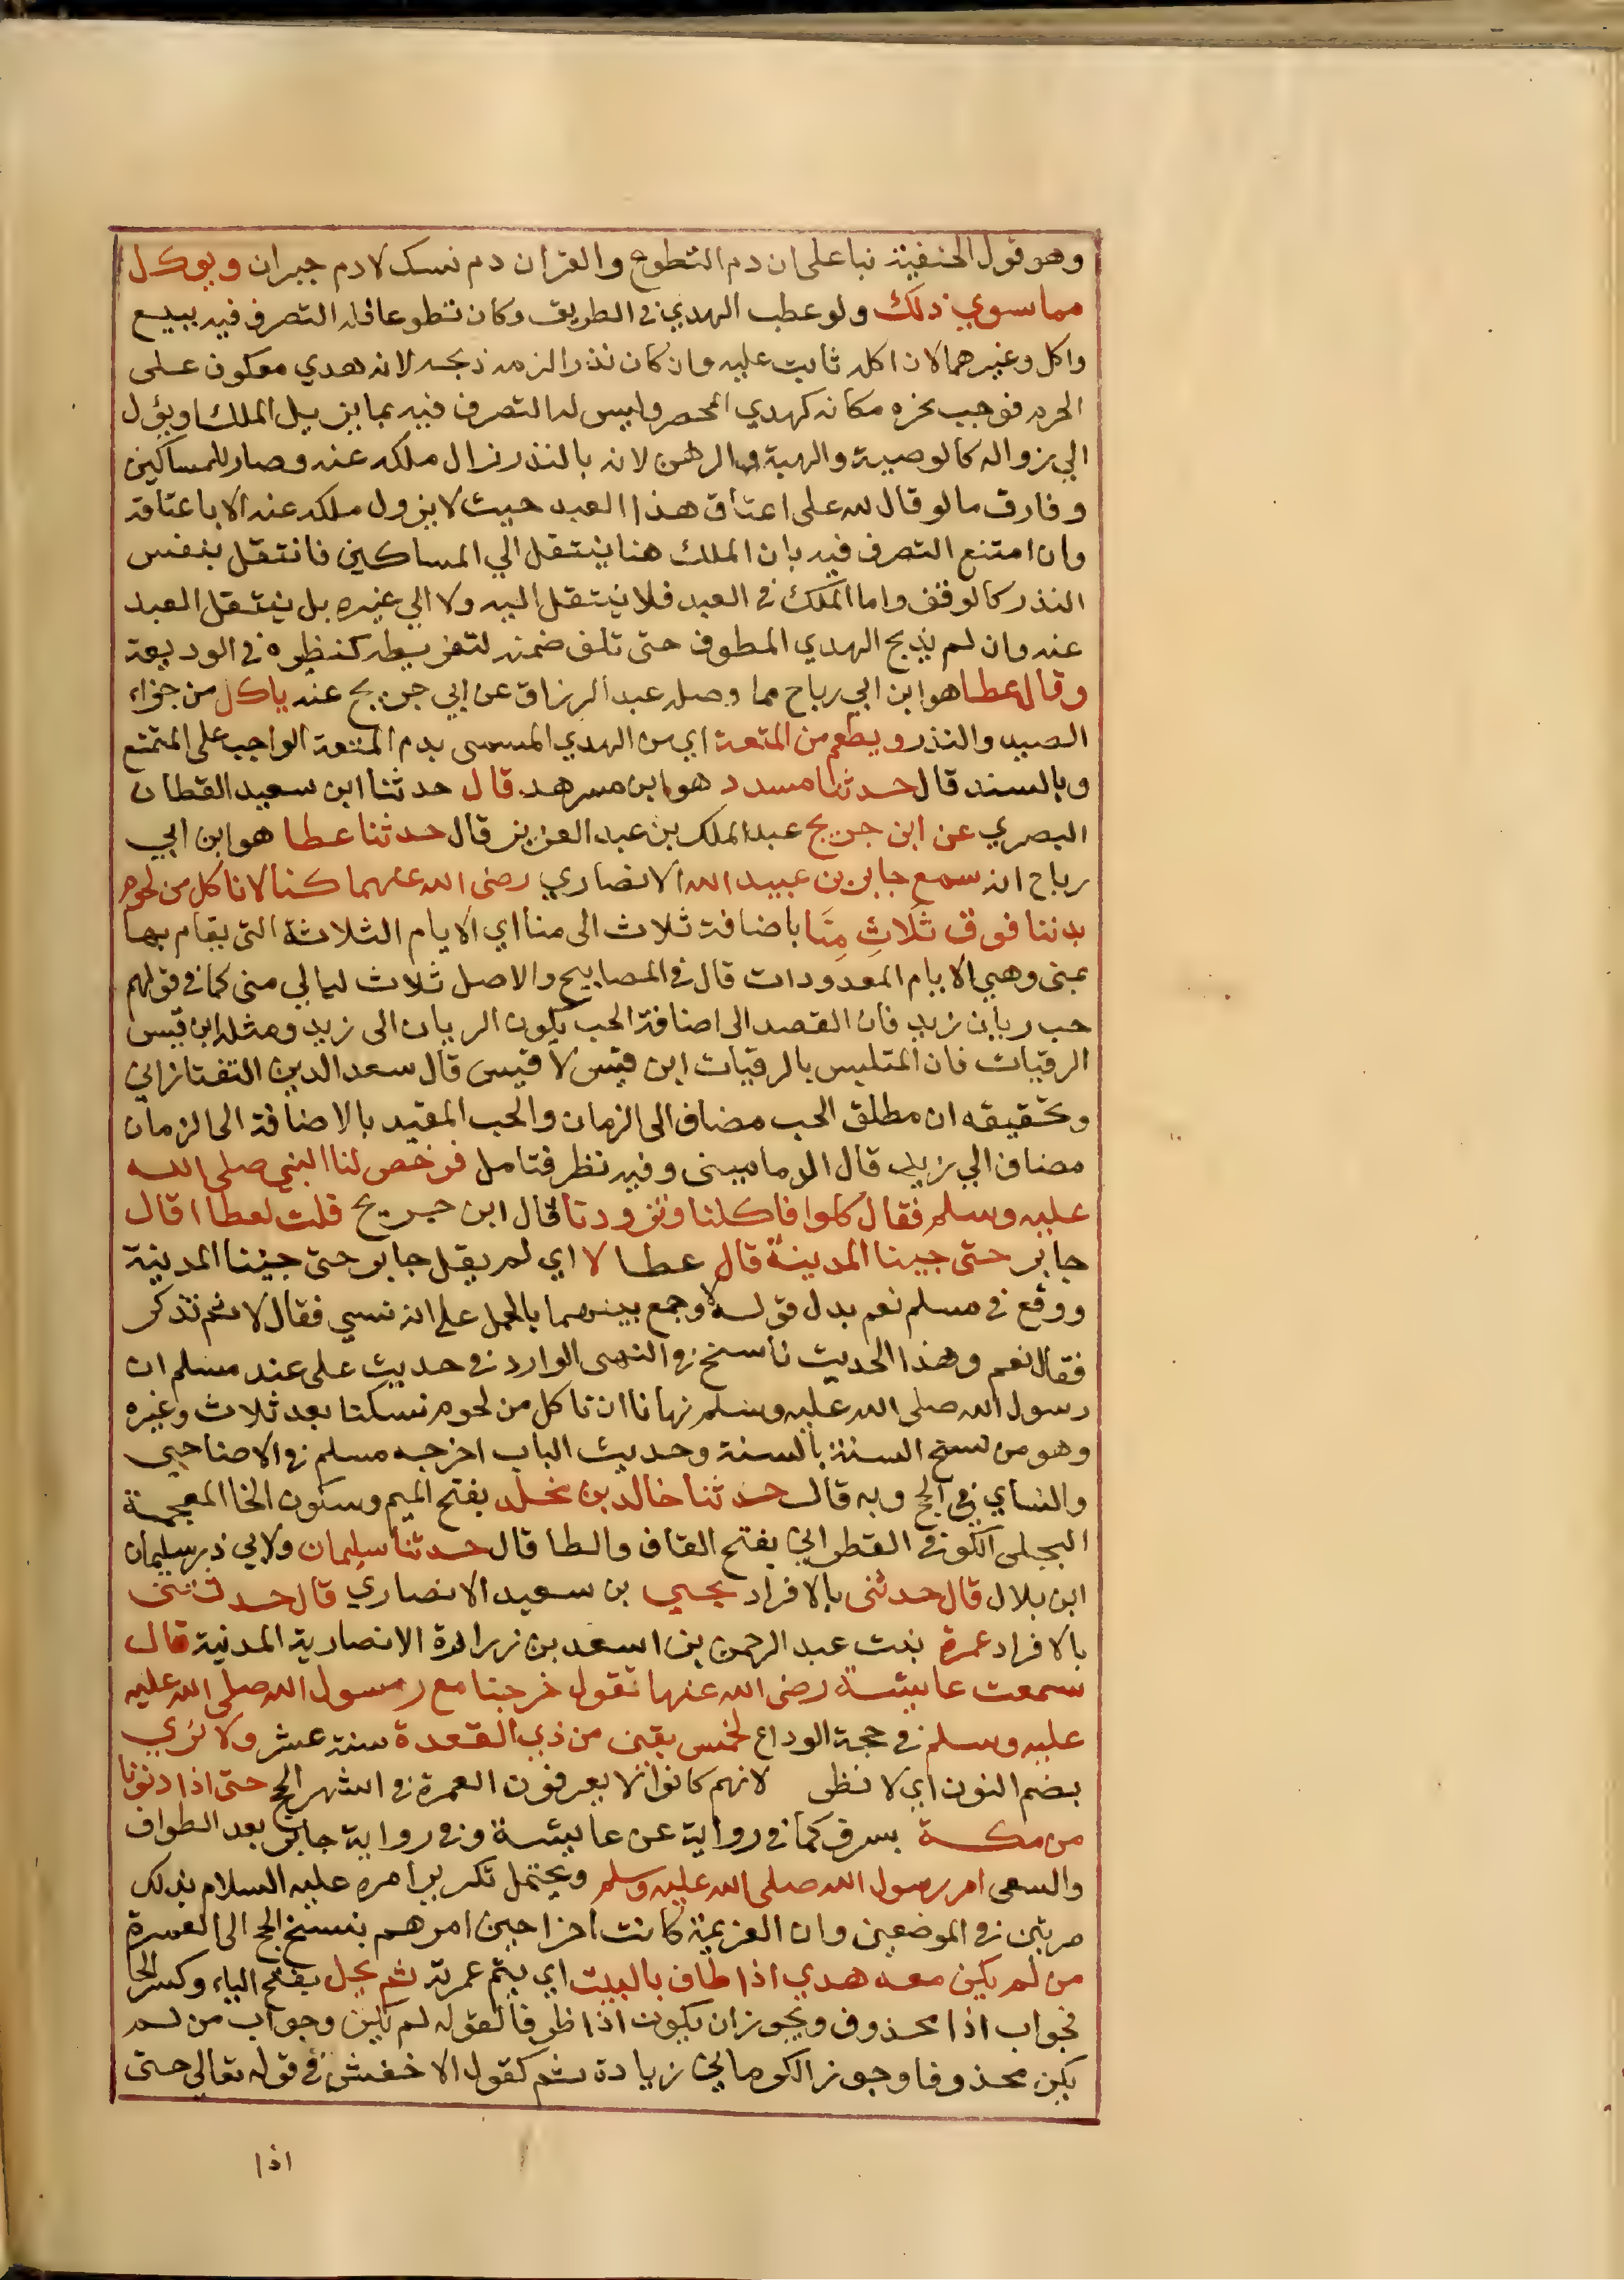 وهو قول الحنفية نبا على ان دم التطوع والقران دم نسك لا دم جبران ويوكل
مما سوي ذلك ولو عطب الهدي في الطريق وكان تطوعا فله التصرف فيه ببيع
واكل وغيرهما لان اكله ثابت عليه وان كان نذرا لزمه ذبحه لانه هدي معكوف على
الحرم فوجب نحره مكانه كهدي المحصر وليس له التصرف فيه بما يزيل الملك او يؤل
الي زواله كالوصية والهبة والرهن لانه بالنذر زال ملكه عنه وصار للمساكين
وفارق ما لو قال لله على اعتاق هذا العبد حيث لا يزول ملكه عنه الا باعتاقه
وان امتنع التصرف فيه بان الملك هنا ينتقل الي المساكين فانتقل بنفس
النذر كالوقف واما الملك في العبد فلا ينتقل اليه ولا الي غيره بل ينتقل العبد
عنه وان لم يذبح الهدي المطوف حتى تلف ضمنه لتفريطه كنظيره في الوديعة
وقال عطا هو ابن ابي رباح مما وصله عبد الرزاق عن ابي جريج عنه ياكل من جزاء
الصيد والنذر ويطعم من المتعة اي من الهدي المسمى بدم المتعة الواجب على المتمتع
وبالسند قال حدثنا مسدد هو ابن مسرهد قال حدثنا ابن سعيد القطان
البصري عن ابن جريج عبد الملك بن عبد العزيز قال حدثنا عطا هو ابن ابي
رباح انه سمع جابر بن عبيد الله الانصاري رضى الله عنهما كنا لا ناكل من لحوم
بدننا فوق ثَلَاثِ مِنَا باضافة ثلاث الى منا اي الايام الثلاثة التى يقام بها
بمنى وهي الايام المعدودات قال في المصابيح والاصل ثلاث ليالي منى كما في قولهم
حب ريان زيد فان القصد الى اضافة الحب بكون الريان الى زيد ومثله ابن قيس
الرقيات فان المتلبس بالرقيات ابن قيس لا قيس قال سعد الدين التفتازاني
وتحقيقه ان مطلق الحب مضاف الى الزمان والحب المقيد بالاضافة الى الزمان
مضاف الي زيد قال الدماميني وفيه نظر فتامل فرخص لنا النبي صلى الله
عليه وسلم فقال كلوا فاكلنا وتزودنا قال ابن جريج قلت لعطا اقال
جابر حتى جينا المدينة قال عطا لا اي لم يقل جابر حتى جيئنا المدينة
ووقع في مسلم نعم بدل قوله لا وجمع بينهما بالحمل على انه نسي فقال لا ثم تذكر
فقال نعم وهذا الحديث ناسخ في النهى الوارد في حديث على عند مسلم ان
رسول الله صلى الله عليه وسلم نهانا ان ناكل من لحوم نسكنا بعد ثلاث وغيره
وهو من نسخ السنة بالسنة وحديث الباب اخرجه مسلم في الاضاحي
والنساي في الحج وبه قال حدثنا خالد بن مخلد بفتح الميم وسكون الخا المعجمة
البجلى الكوفي القطواني بفتح القاف والطا قال حدثنا سليمان ولابي ذر سليمان
ابن بلال قال حدثنى بالافراد يحيى بن سعيد الانصاري قال حدثتنى
بالافراد عمرة بنت عبد الرحمن بن اسعد بن زرارة الانصارية المدنية قال
سمعت عايشة رضى الله عنها تقول خرجنا مع رسول الله صلى الله عليه
عليه وسلم في حجة الوداع لخمس بقين من ذي القعدة سنة عشر ولا نري
بضم النون اي لا نظن لانهم كانوا لا يعرفون العمرة في اشهر الحج حتى اذا دنونا
من مكة بسرف كما في رواية عن عايشة وفي رواية جابر بعد الطواف
والسعى امر رسول الله صلى الله عليه وسلم ويحتمل تكرير امره عليه السلام بذلك
مرتين في الموضعين وان العزيمة كانت اخرا حين امرهم بفسخ الحج الى العمرة
من لم يكن معه هدي اذا طاف بالبيت اي يتم عمرته ثم يحل بفتح الياء وكسر الحا
فجواب اذا محذوف ويجوز ان يكون اذا ظرفا لقوله لم يكن وجواب من لم
يكن محذوفا وجوز الكرماني زيادة ثم كقول الاخفش في قوله تعالى حتى
اذا